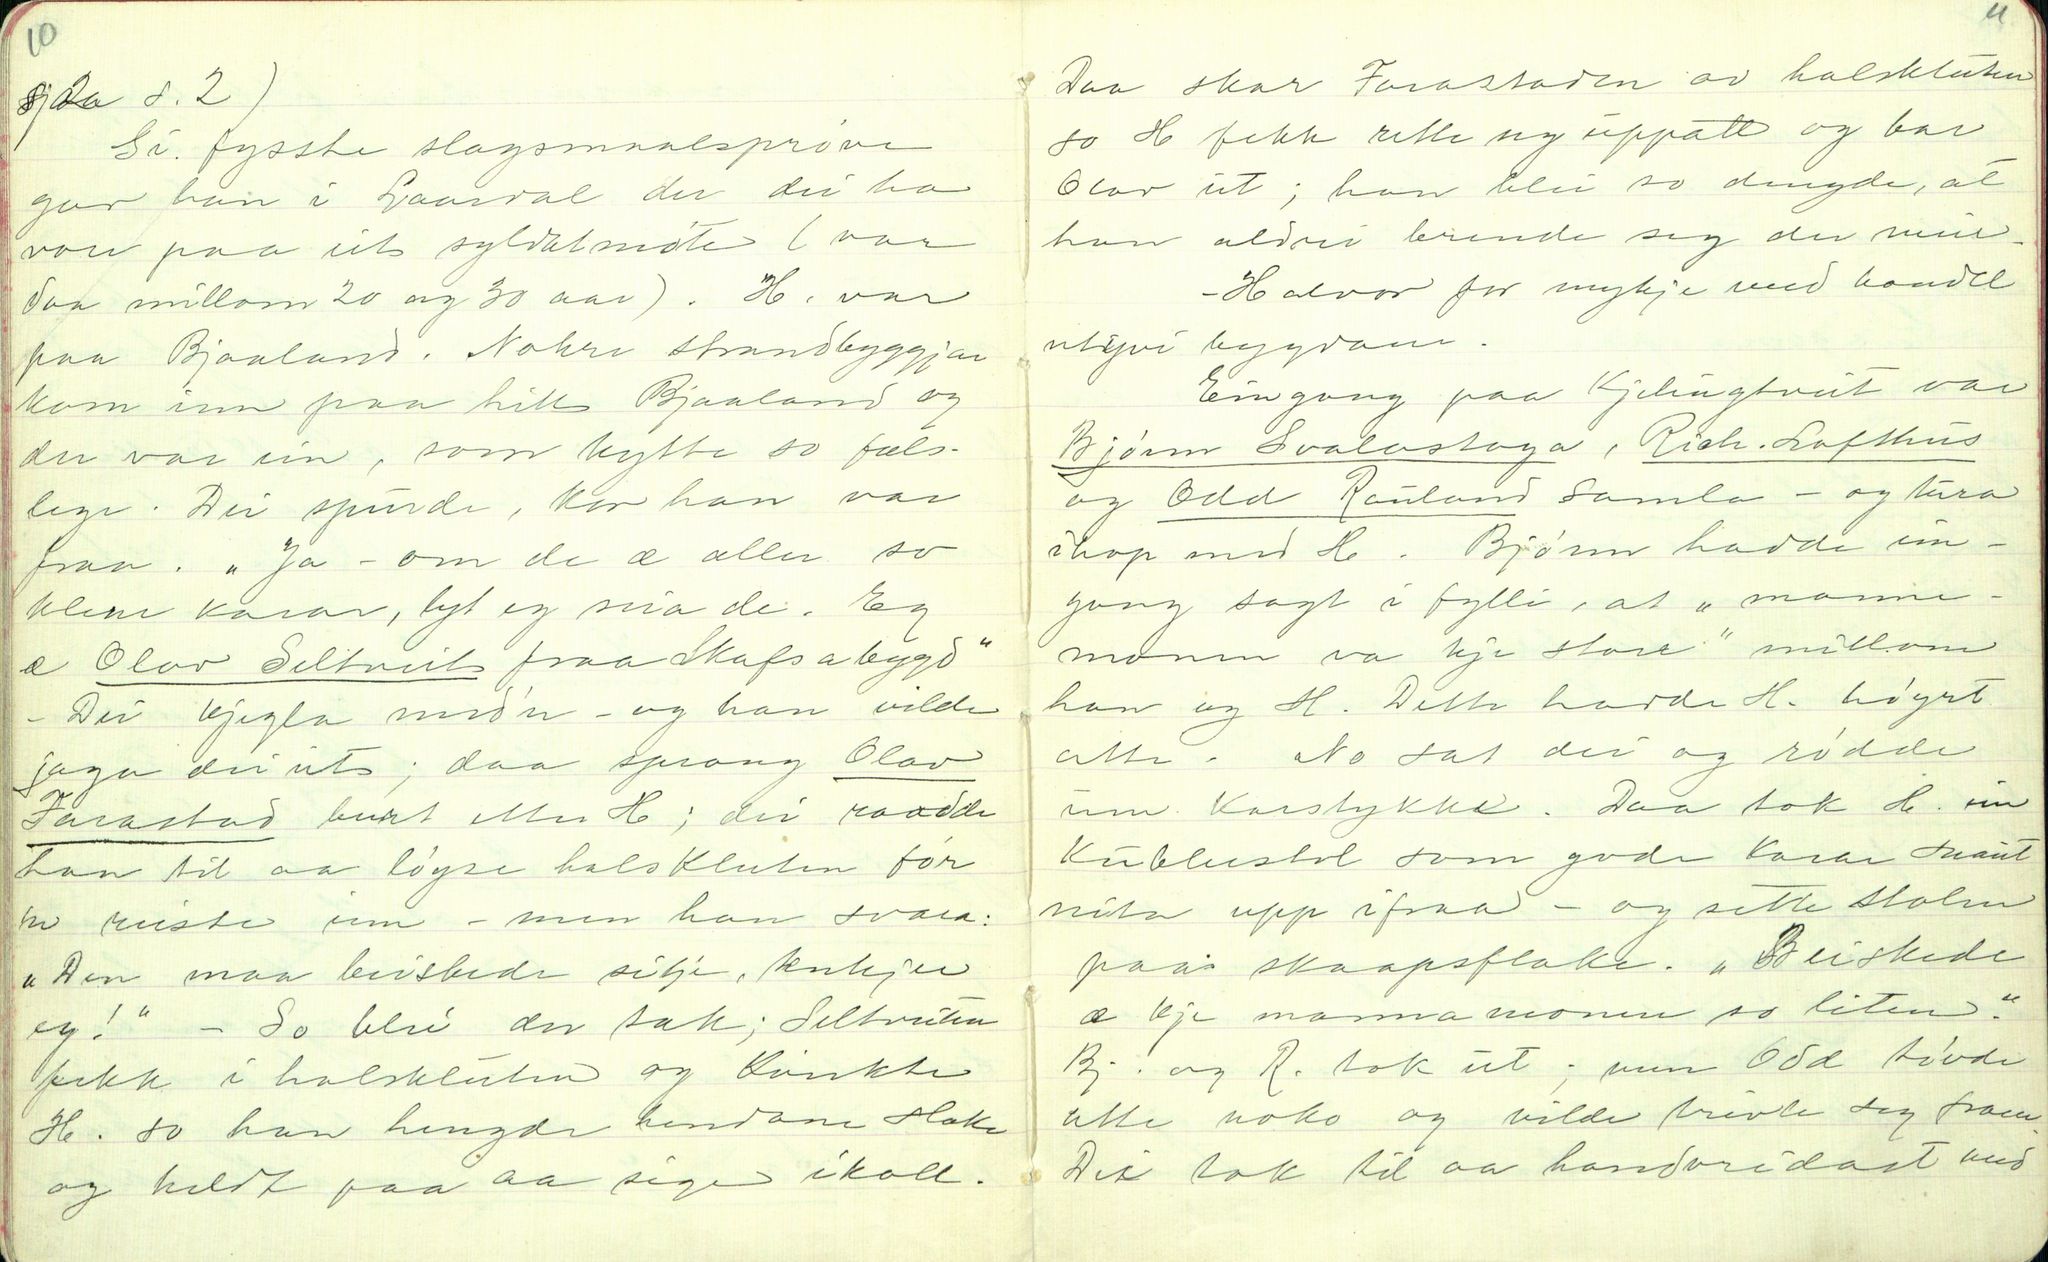 10
sjaa s. 2)
Si fysste slagsmaalsprøve
gav han i Laardal der dei ha
vore paa eit syldatmøte (var
daa millom 20 og 30 aar). H. var
paa Bjaaland. Nokre strandbyggjar
kom inn paa hitt Bjaaland og
der var ein, som kytte so fæls-
lege. Dei spurde, kor han var
fraa. "Ja - om de æ aller so
klene karar, lyt eg seia de. Eg
æ Olav Seltveit fraa Skafsabygd"
- Dei kjegla med'n - og han vilde
jaga dei ut; daa sprang Olav
Farastad burt etter H; dei raadde
han til aa løyse halskluten før
n reiste inn - men han svara:
"Den maa beisledi sitje, tenkjer
eg!" - So blei der tak; Seltveiten
fekk i halskluten og kinkte
H. so han hengde hendane slake
og heldt paa aa sige ikoll.
11
Daa skar Farastaden av halskluten
so H fekk rette seg uppatt og bar
Olav ut; han blei so dengde, at
han aldrei brende seg der meir.
- Halvor for mykje med handel
utyvi bygdane.
Eingong paa Kjelingtveit var
Bjørn Svalastoga, Rich. Lofthus
og Odd Rauland samla - og tura
ihop med H. Bjørn hadde ein-
gong sagt i fylli, at "manne-
monen va kje store" millom
han og H. Dette hadde H. høyrt
atte. No sat dei og rødde
um karstykke. Daa tok H. ein
kubbestol som gode karar snaut
neta upp ifraa - og sette stolen
paa skaapsflake. "Beiskede
æ kje mannamonen so liten."
Bj. og R. tok ut; men Odd tøvde
atte noko og vilde trivle seg fram.
Dei tok til aa handvridast med